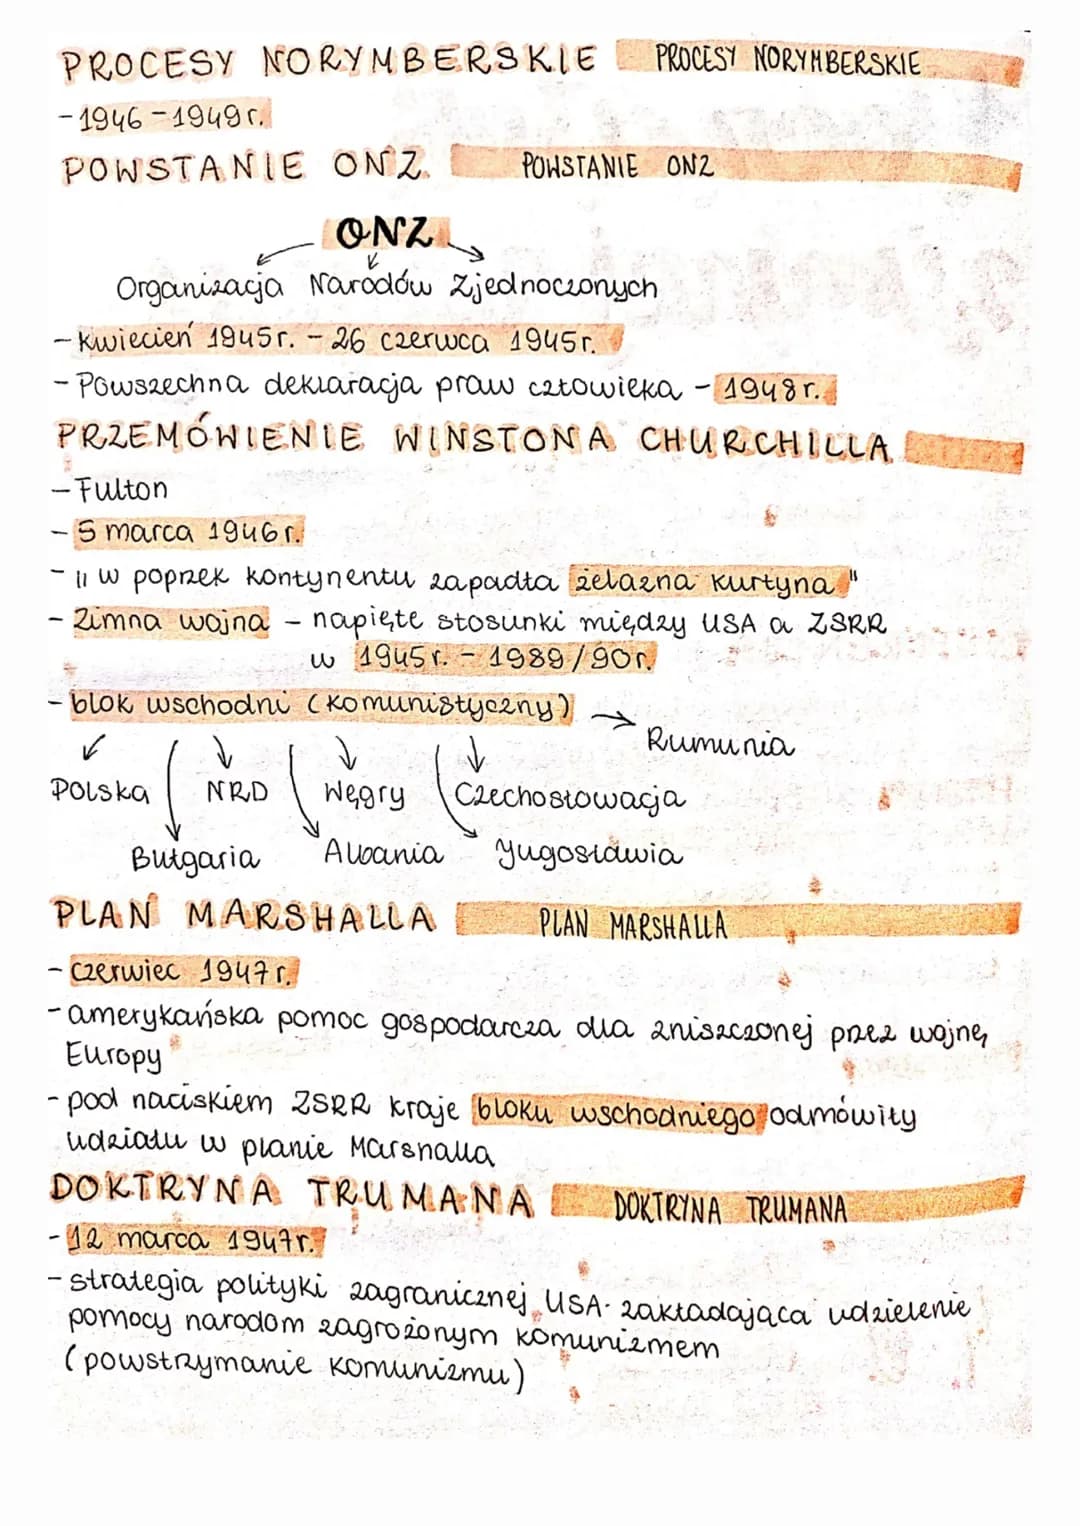 PROCESY NORYMBERSKIE PROCESY NORYMBERSKIE
- 1946 - 1949 r.
POWSTANIE ONZ. POWSTANIE ONZ
ONZ
Organizacja Narodów Zjednoczonych
- kwiecień 1945r. - 26 czerwca 1945r.
- Powszechna deklaracja praw człowieka - 1948r.
PRZEMÓWIENIE WINSTONA CHURCHILLA
- Fulton
- 5 marca 1946r.
- "w poprzek kontynentu zapadła żelazna kurtyna"
- Zimna wojna - napięte stosunki między USA a ZSRR
w 1945r. - 1989/90r.
- blok wschodni (komunistyczny) → Rumunia
Polska NRD Węgry Czechosłowacja
Bułgaria Albania Jugosławia
PLAN MARSHALLA PLAN MARSHALLA
- czerwiec 1947r.
- amerykańska pomoc gospodarcza dla zniszczonej przez wojnę
Europy
- pod naciskiem ZSRR kraje bloku wschodniego odmówiły
udziału w planie Marshalla
DOKTRYNA TRUMANA DOKTRYNA TRUMANA
- 12 marca 1947r.
- strategia polityki zagranicznej USA zakładająca udzielenie
pomocy narodom zagrożonym komunizmem
(powstrzymanie komunizmu)